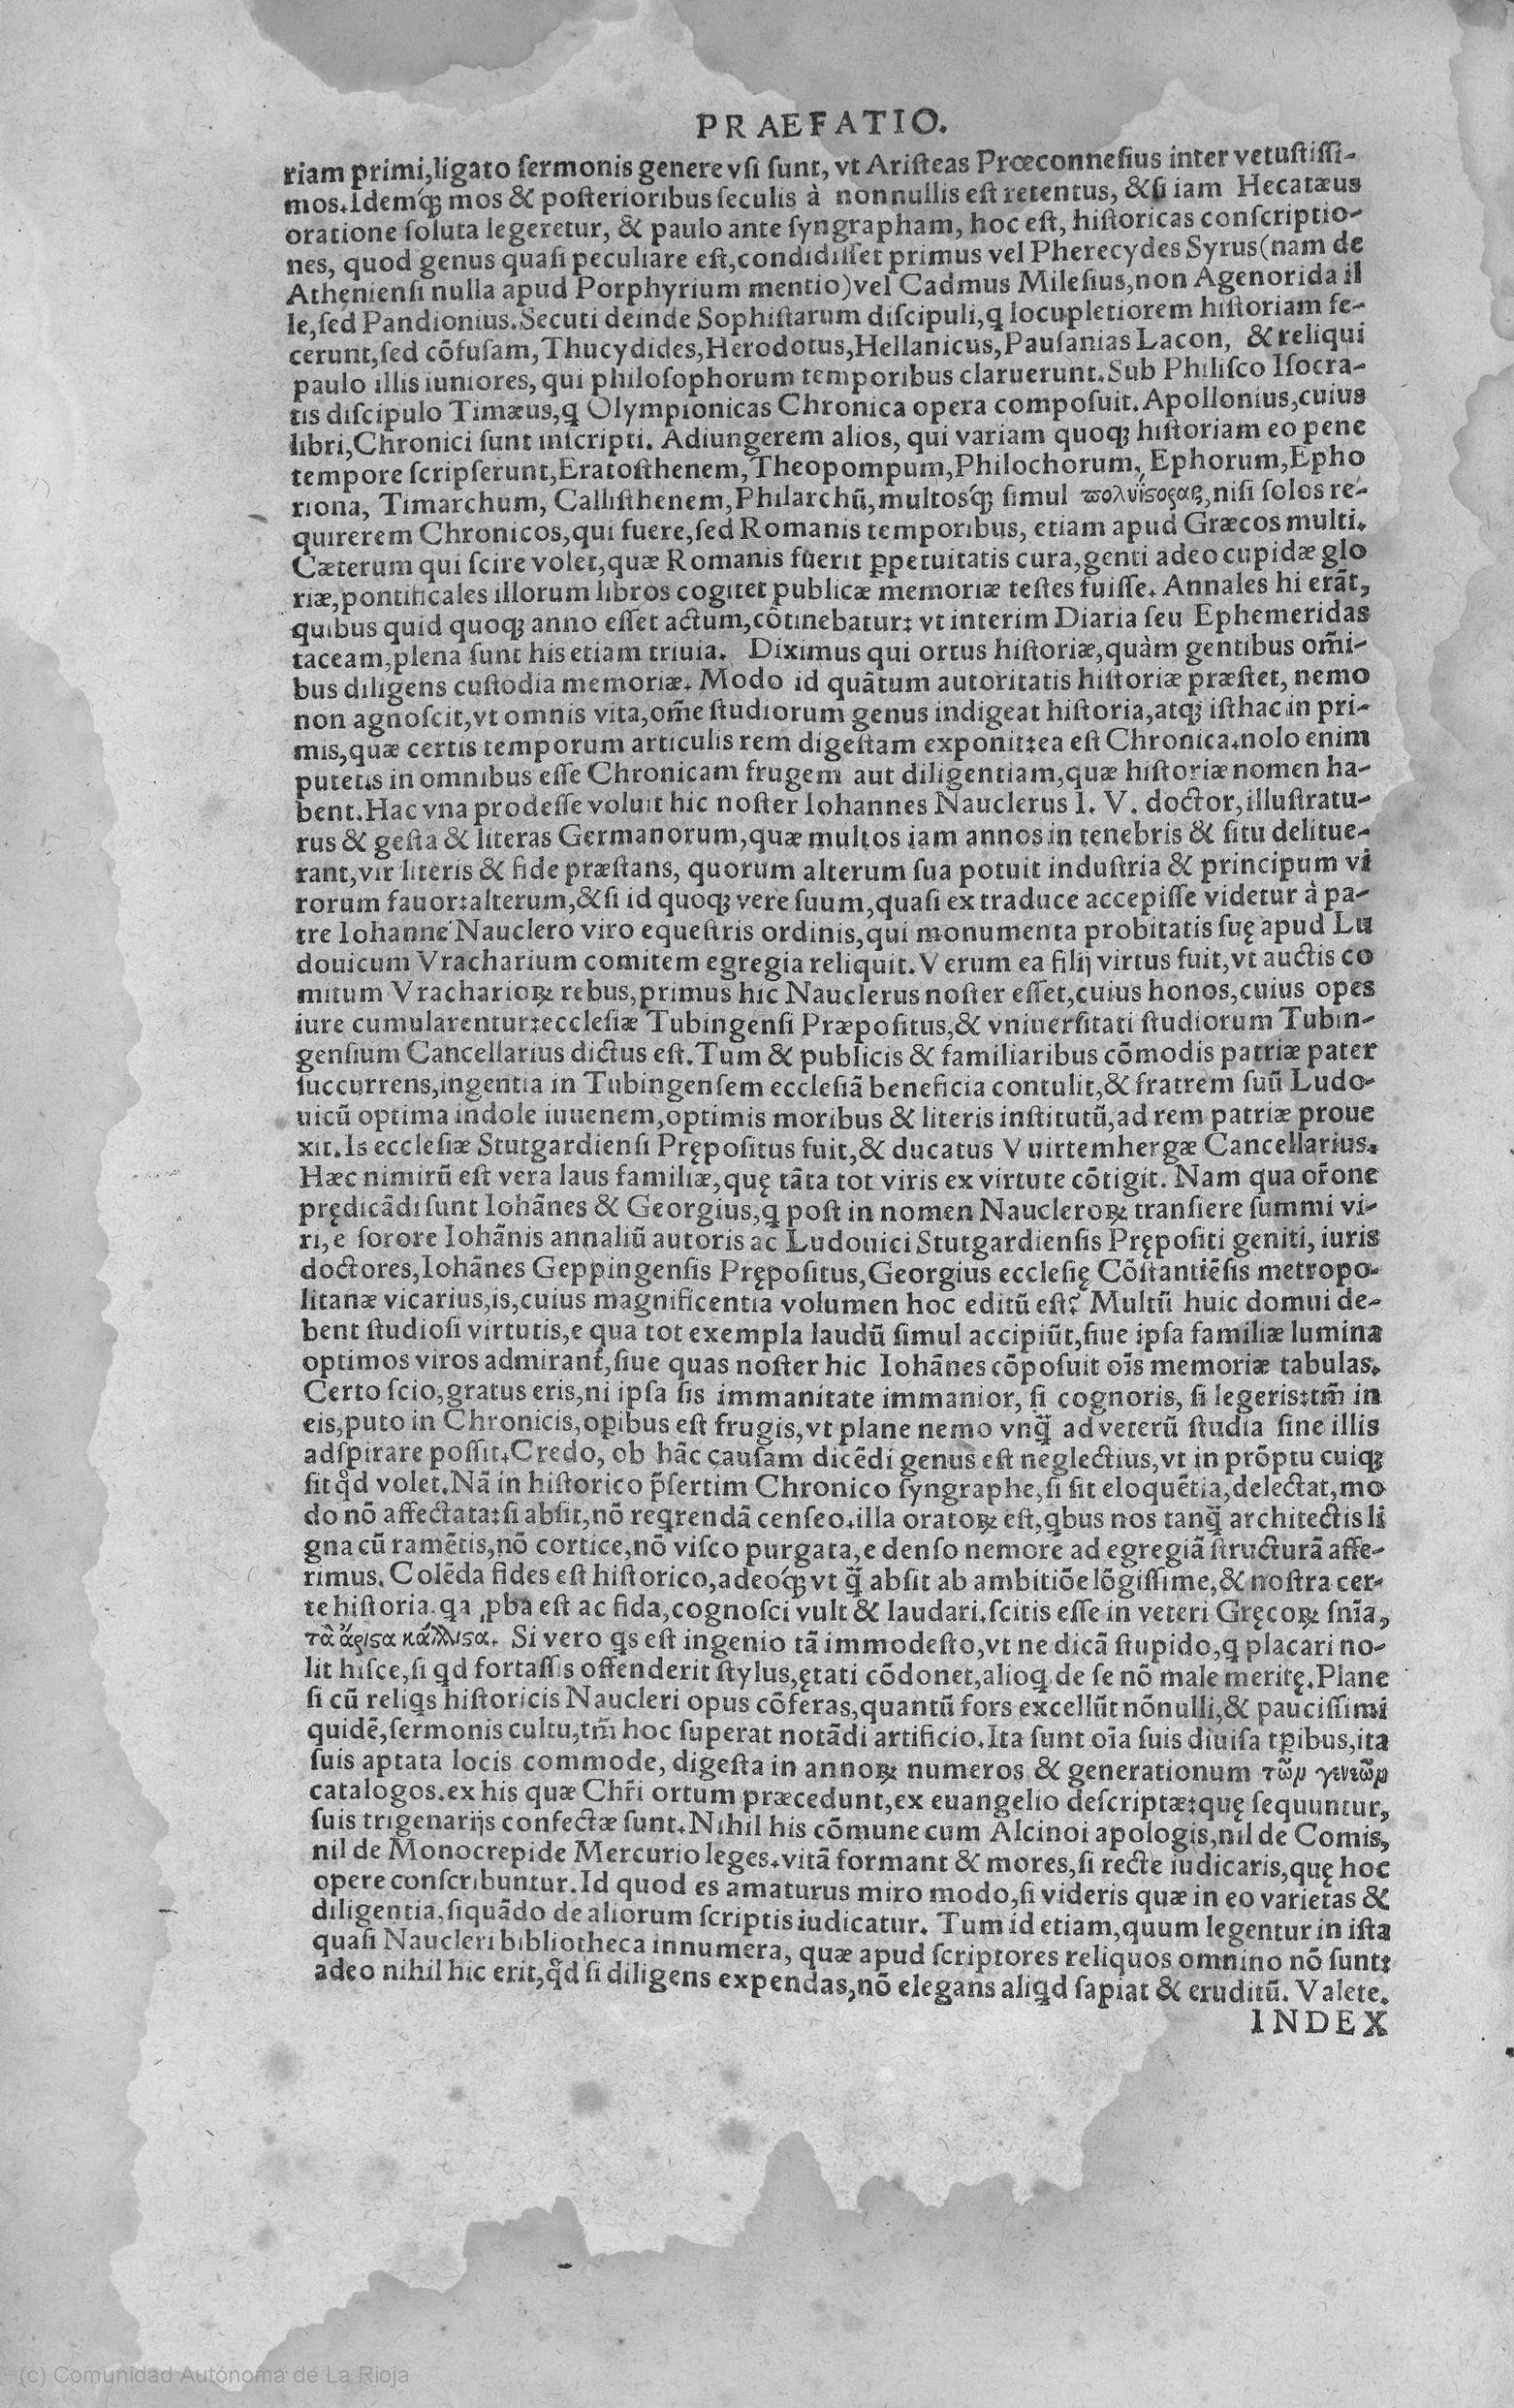 PRAEFATIO.
riam primi, ligato ſermonis genere vſi ſunt, vt Ariſteas Prœconneſius inter vetuſtiſſi-
mos. Idemq́ꝫ mos & poſterioribus ſeculis à nonnullis eſt retentus, &ſi iam Hecatæus
oratione ſoluta legeretur, & paulo ante ſyngrapham, hoc eſt, hiſtoricas conſcriptio-
nes, quod genus quaſi peculiare eſt, condidiſſet primus vel Pherecydes Syrus (nam de
Athęnienſi nulla apud Porphyrium mentio) vel Cadmus Mileſius, non Agenorida il
le, ſed Pandionius. Secuti deinde Sophiſtarum diſcipuli, q locupletiorem hiſtoriam fe-
cerunt, ſed cõfuſam, Thucydides, Herodotus, Hellanicus, Pauſanias Lacon, & reliqui
paulo illis iuniores, qui philoſophorum temporibus claruerunt. Sub Philiſco Iſocra-
tis diſcipulo Timæus, q Olympionicas Chronica opera compoſuit. Apollonius, cuius
libri, Chronici ſunt inſcripti. Adiungerem alios, qui variam quoqꝫ hiſtoriam eo pene
tempore ſcripſerunt, Eratoſthenem, Theopompum, Philochorum, Ephorum, Epho
riona, Timarchum, Calliſthenem, Philarchũ, multosq́ꝫ ſimul πολυΐϛορας, niſi ſolos re-
quirerem Chronicos, qui fuere, ſed Romanis temporibus, etiam apud Græcos multi.
Cæterum qui ſcire volet, quæ Romanis fuerit ꝑpetuitatis cura, genti adeo cupidæ glo
riæ, pontificales illorum libros cogitet publicæ memoriæ teſtes fuiſſe. Annales hi erãt,
quibus quid quoqꝫ anno eſſet actum, cõtinebatur: vt interim Diaria ſeu Ephemeridas
taceam, plena ſunt his etiam triuia. Diximus qui ortus hiſtoriæ, quàm gentibus om̃i-
bus diligens cuſtodia memoriæ. Modo id quãtum autoritatis hiſtoriæ præſtet, nemo
non agnoſcit, vt omnis vita, om̃e ſtudiorum genus indigeat hiſtoria, atqꝫ iſthac in pri-
mis, quæ certis temporum articulis rem digeſtam exponit: ea eſt Chronica. nolo enim
putetis in omnibus eſſe Chronicam frugem aut diligentiam, quæ hiſtoriæ nomen ha-
bent. Hac vna prodeſſe voluit hic noſter Iohannes Nauclerus I. V. doctor, illuſtratu-
rus & geſta & literas Germanorum, quæ multos iam annos in tenebris & ſitu delitue-
rant, vir literis & fide præſtans, quorum alterum ſua potuit induſtria & principum vi
rorum fauor: alterum, &ſi id quoqꝫ vere ſuum, quaſi ex traduce accepiſſe videtur à pa-
tre Iohanne Nauclero viro equeſtris ordinis, qui monumenta probitatis ſuę apud Lu
douicum Vracharium comitem egregia reliquit. Verum ea filij virtus fuit, vt auctis co
mitum Vrachariorꝫ rebus, primus hic Nauclerus noſter eſſet, cuius honos, cuius opes
iure cumularentur: eccleſiæ Tubingenſi Præpoſitus, & vniuerſitati ſtudiorum Tubin-
genſium Cancellarius dictus eſt. Tum & publicis & familiaribus cõmodis patriæ pater
ſuccurrens, ingentia in Tubingenſem eccleſiã beneficia contulit, & fratrem ſuũ Ludo-
uicũ optima indole iuuenem, optimis moribus & literis inſtitutũ, ad rem patriæ proue
xit. Is eccleſiæ Stutgardienſi Prępoſitus fuit, & ducatus Vuirtemhergæ Cancellarius.
Hæc nimirũ eſt vera laus familiæ, quę tãta tot viris ex virtute cõtigit. Nam qua or̃one
prędicãdi ſunt Iohãnes & Georgius, q poſt in nomen Nauclerorꝫ tranſiere ſummi vi-
ri, e ſorore Iohãnis annaliũ autoris ac Ludouici Stutgardienſis Prępoſiti geniti, iuris
doctores, Iohãnes Geppingenſis Prępoſitus, Georgius eccleſię Cõſtantiẽſis metropo-
litanæ vicarius, is, cuius magnificentia volumen hoc editũ eſt? Multũ huic domui de-
bent ſtudioſi virtutis, e qua tot exempla laudũ ſimul accipiũt, ſiue ipſa familiæ lumina
optimos viros admirant̃, ſiue quas noſter hic Iohãnes cõpoſuit oĩs memoriæ tabulas.
Certo ſcio, gratus eris, ni ipſa ſis immanitate immanior, ſi cognoris, ſi legeris: tm̃ in
eis, puto in Chronicis, oꝑibus eſt frugis, vt plane nemo vnq̃ ad veterũ ſtudia ſine illis
adſpirare poſſit. Credo, ob hãc cauſam dicẽdi genus eſt neglectius, vt in prõptu cuiqꝫ
ſit qd́ volet. Nã in hiſtorico p̃ſertim Chronico ſyngraphe, ſi ſit eloquẽtia, delectat, mo
do nõ affectata: ſi abſit, nõ reqrendã cenſeo. illa oratorꝫ eſt, qbus nos tanq̃ architectis li
gna cũ ramẽtis, nõ cortice, nõ viſco purgata, e denſo nemore ad egregiã ſtructurã affe-
rimus. Colẽda fides eſt hiſtorico, adeoq́ꝫ vt q̃ abſit ab ambitiõe lõgiſſime, & noſtra cer-
te hiſtoria qa ꝓba eſt ac fida, cognoſci vult & laudari. ſcitis eſſe in veteri Gręcorꝫ ſnĩa,
τὰ ἄριϛα κάλλιϛα. Si vero qs eſt ingenio tã immodeſto, vt ne dicã ſtupido, q placari no-
lit hiſce, ſi qd fortaſſis offenderit ſtylus, ętati cõdonet, alioq de ſe nõ male meritę. Plane
ſi cũ reliqs hiſtoricis Naucleri opus cõferas, quantũ fors excellũt nõnulli, & pauciſſimi
quidẽ, ſermonis cultu, tm̃ hoc ſuperat notãdi artificio. Ita ſunt oĩa ſuis diuiſa tꝑibus, ita
ſuis aptata locis commode, digeſta in annorꝫ numeros & generationum τῶν γενεῶν
catalogos. ex his quæ Chr̃i ortum præcedunt, ex euangelio deſcriptæ: quę ſequuntur,
ſuis trigenarijs confectæ ſunt. Nihil his cõmune cum Alcinoi apologis, nil de Comis,
nil de Monocrepide Mercurio leges. vitã formant & mores, ſi recte iudicaris, quę hoc
opere conſcribuntur. Id quod es amaturus miro modo, ſi videris quæ in eo varietas &
diligentia, ſiquãdo de aliorum ſcriptis iudicatur. Tum id etiam, quum legentur in iſta
quaſi Naucleri bibliotheca innumera, quæ apud ſcriptores reliquos omnino nõ ſunt:
adeo nihil hic erit, qd́ ſi diligens expendas, nõ elegans aliqd ſapiat & eruditũ. Valete.
INDEX
(c) Comunidad Autónoma de La Rioja